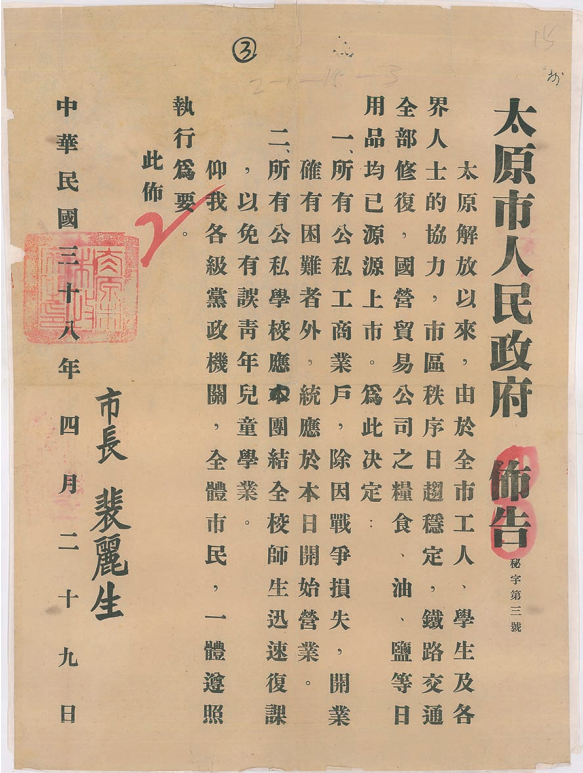 太原市人民政府 佈告
秘字第三號
太原解放以來，由於全市工人、學生及各
界人士的協力，市區秩序日趨穩定，鐵路交通
全部修復，國營貿易公司之糧食、油、鹽等日
用品均已源源上市。爲此決定：
一、所有公私工商業戶，除因戰爭損失，開業
確有困難者外，統應於本日開始營業。
二、所有公私學校應本團結全校師生迅速復課
，以免有誤靑年兒童學業。
仰我各級黨政機關，全體市民，一體遵照
執行爲要。
此佈
市長 裴麗生
中華民國三十八年四月二十九日
③
2-1-15-3
15